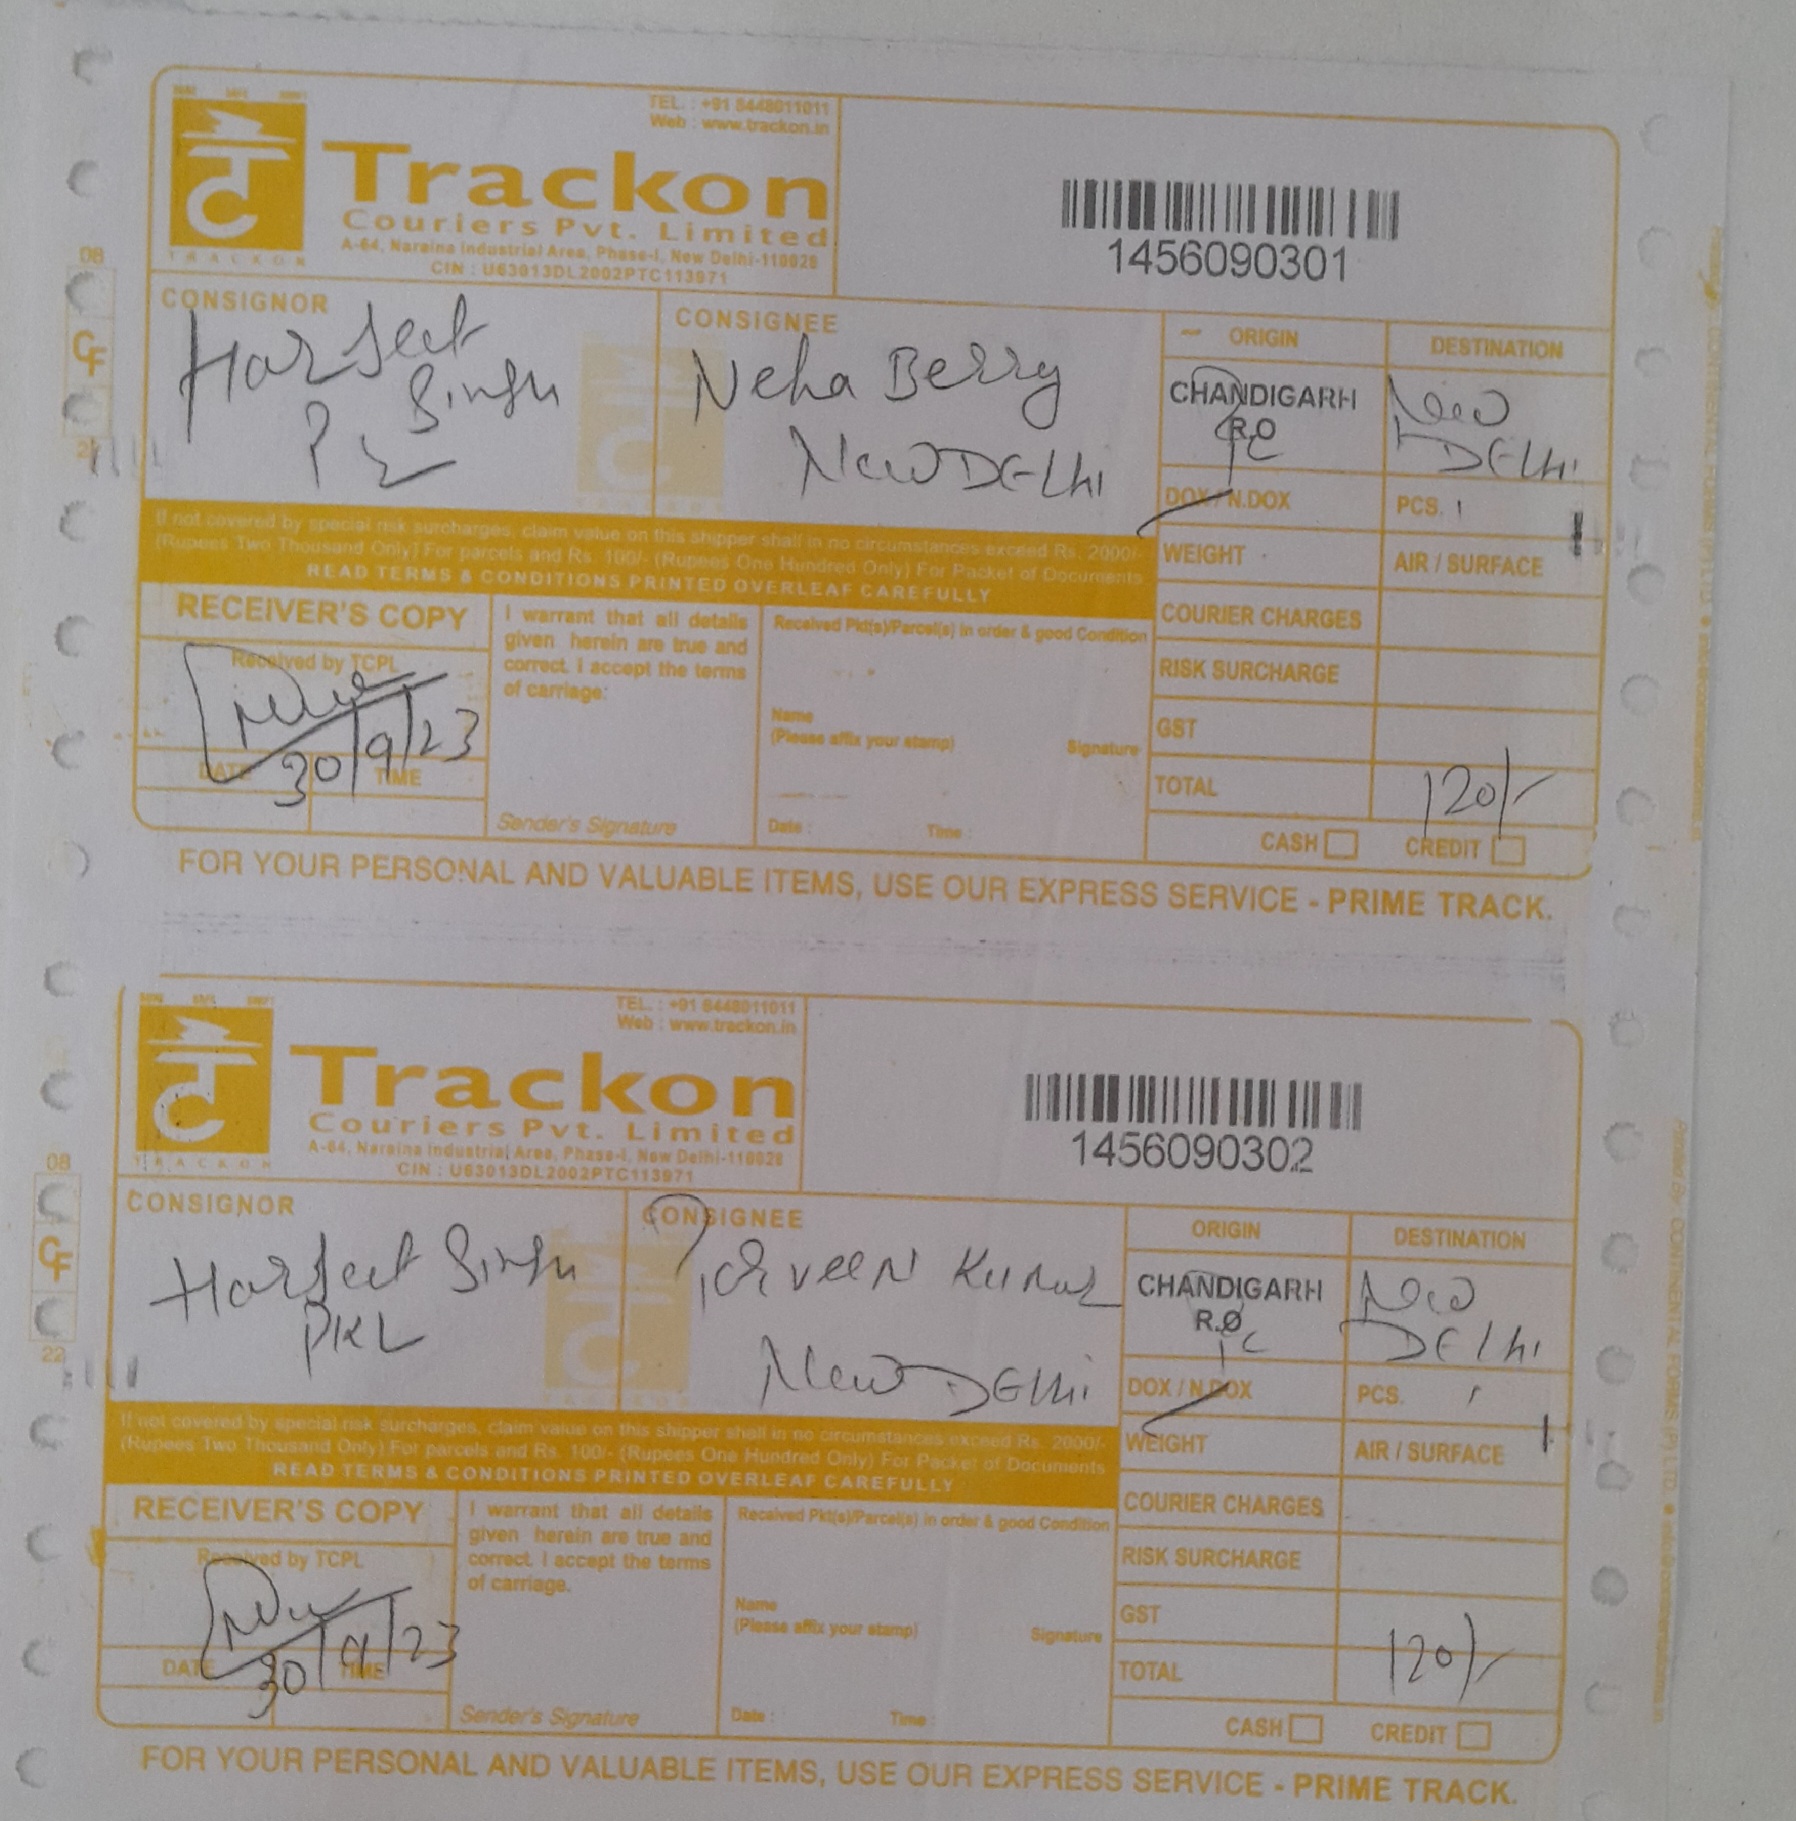 TEL. : +91 8448011011
Web : www.trackon.in
Trackon
Couriers Pvt. Limited
A-64, Naraina Industrial Area, Phase-I, New Delhi-110028
CIN : U63013DL2002PTC113971
TRACKON
1456090301
CONSIGNOR
Singh
CONSIGNEE
Neha Berry
New DELhi
ORIGIN
CHANDIGARH
R.O
DESTINATION
New
DELhi
DOX / N.DOX
PCS. 1
WEIGHT
AIR / SURFACE
COURIER CHARGES
RISK SURCHARGE
GST
TOTAL
120/-
CASH
CREDIT
If not covered by special risk surcharges, claim value on this shipper shall in no circumstances exceed Rs. 2000/-
(Rupees Two Thousand Only) For parcels and Rs. 100/- (Rupees One Hundred Only) For Packet of Documents
READ TERMS & CONDITIONS PRINTED OVERLEAF CAREFULLY
RECEIVER'S COPY
Received by TCPL
30/9/23
DATE
TIME
I warrant that all details
given herein are true and
correct. I accept the terms
of carriage:
Sender's Signature
Received Pkt(s)/Parcel(s) in order & good Condition
Name
(Please affix your stamp)
Signature
Date :
Time :
FOR YOUR PERSONAL AND VALUABLE ITEMS, USE OUR EXPRESS SERVICE - PRIME TRACK.
08
CF
TEL. : +91 8448011011
Web : www.trackon.in
Trackon
Couriers Pvt. Limited
A-64, Naraina Industrial Area, Phase-I, New Delhi-110028
CIN : U63013DL2002PTC113971
TRACKON
1456090302
CONSIGNOR
Singh
PKL
CONSIGNEE
Kumar
New DELhi
ORIGIN
CHANDIGARH
R.O
DESTINATION
New
DELhi
DOX / N.DOX
PCS. 1
WEIGHT
AIR / SURFACE
COURIER CHARGES
RISK SURCHARGE
GST
TOTAL
120/-
CASH
CREDIT
If not covered by special risk surcharges, claim value on this shipper shall in no circumstances exceed Rs. 2000/-
(Rupees Two Thousand Only) For parcels and Rs. 100/- (Rupees One Hundred Only) For Packet of Documents
READ TERMS & CONDITIONS PRINTED OVERLEAF CAREFULLY
RECEIVER'S COPY
Received by TCPL
30/9/23
DATE
TIME
I warrant that all details
given herein are true and
correct. I accept the terms
of carriage.
Sender's Signature
Received Pkt(s)/Parcel(s) in order & good Condition
Name
(Please affix your stamp)
Signature
Date :
Time :
FOR YOUR PERSONAL AND VALUABLE ITEMS, USE OUR EXPRESS SERVICE - PRIME TRACK.
08
CF
22